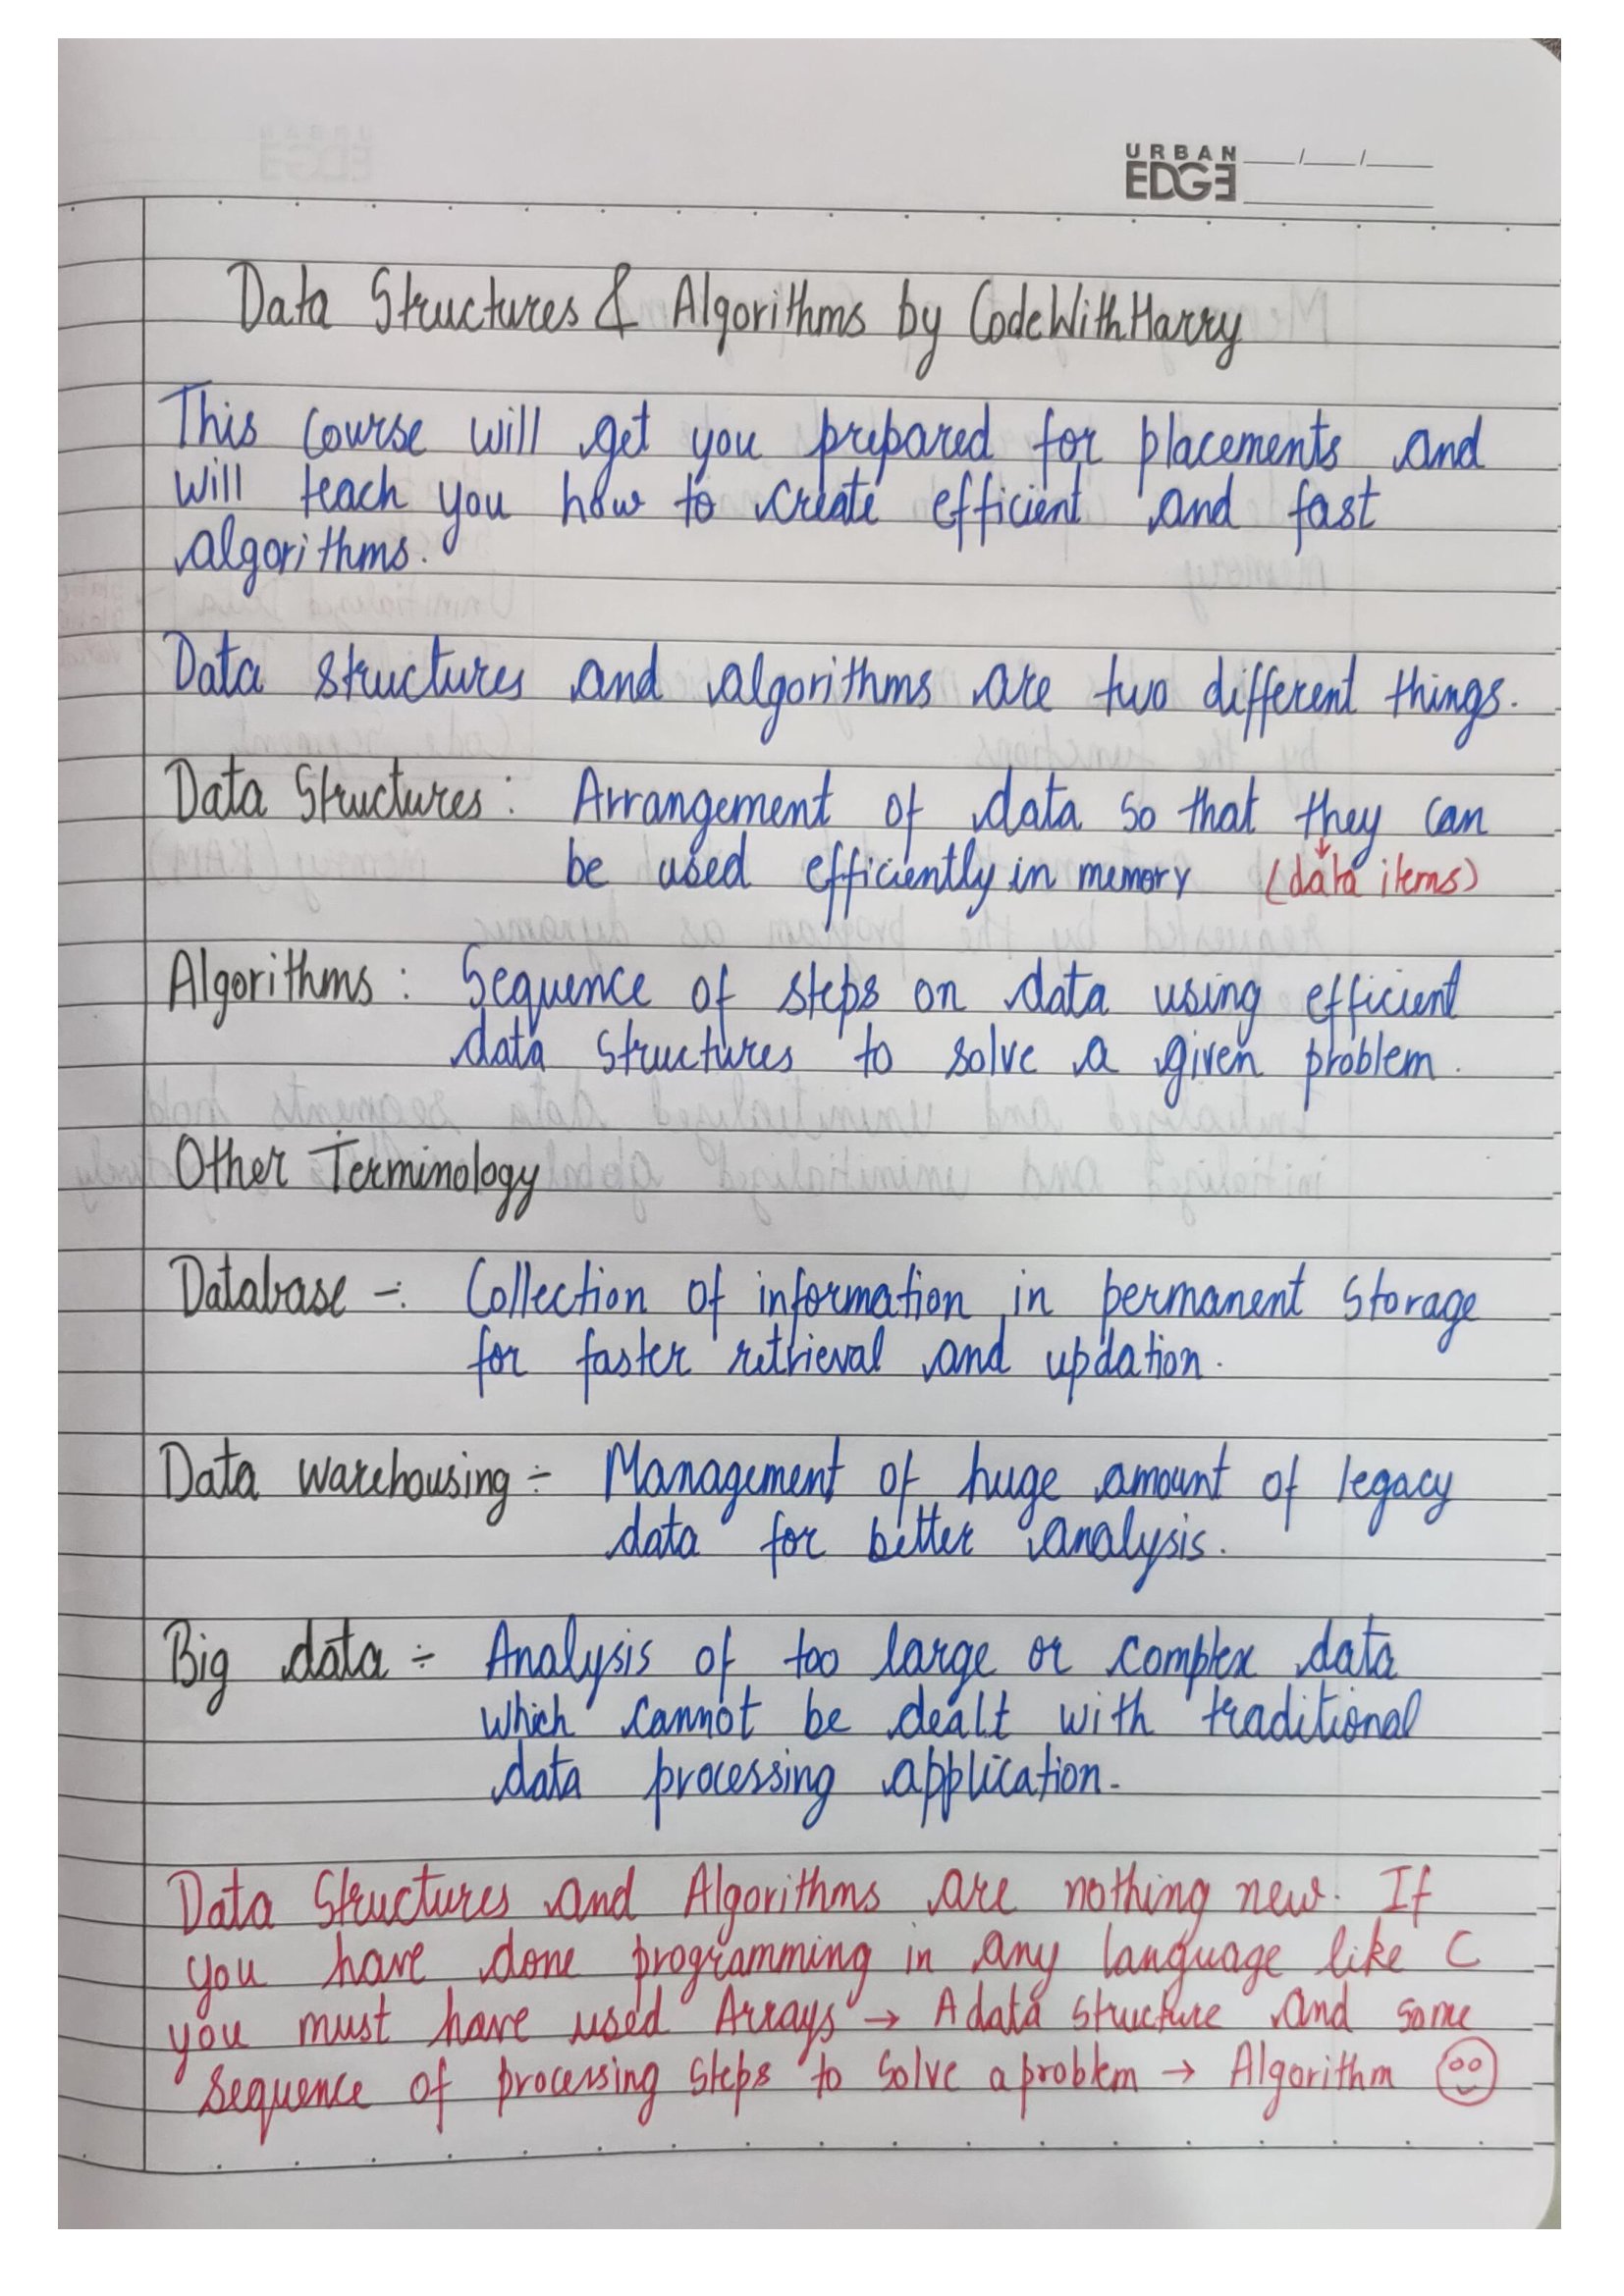 URBAN
EDGE
Data Structures & Algorithms by CodeWithHarry
This course will get you prepared for placements and
will teach you how to create efficient and fast
algorithms.
Data structures and algorithms are two different things.
Data Structures : Arrangement of data so that they can
be used efficiently in memory (data items)
Algorithms : Sequence of steps on data using efficient
data structures to solve a given problem.
Other Terminology
Database -: Collection of information in permanent storage
for faster retrieval and updation.
Data warehousing ÷ Management of huge amount of legacy
data for better analysis.
Big data ÷ Analysis of too large or complex data
which cannot be dealt with traditional
data processing application.
Data Structures and Algorithms are nothing new. If
you have done programming in any language like C
you must have used Arrays → A data structure and some
sequence of processing steps to solve a problem → Algorithm